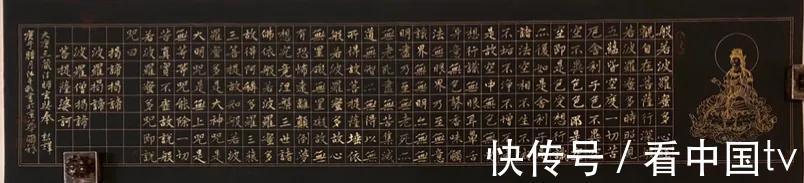 般若波羅蜜多心經
觀自在菩薩行深般
若波羅蜜多時照見
五蘊皆空度一切苦
厄舍利子色不異空
空不異色色即是空
空即是色受想行識
亦復如是舍利子是
諸法空相不生不滅
不垢不淨不增不減
是故空中無色無受
想行識無眼耳鼻舌
身意無色聲香味觸
法無眼界乃至無意
識界無無明亦無無
明盡乃至無老死亦
無老死盡無苦集滅
道無智亦無得以無
所得故菩提薩埵依
般若波羅蜜多故心
無罣礙無罣礙故無
有恐怖遠離顛倒夢
想究竟涅槃三世諸
佛依般若波羅蜜多
故得阿耨多羅三藐
三菩提故知般若波
羅蜜多是大神咒是
大明咒是無上咒是
無等等咒能除一切
苦真實不虛故說般
若波羅蜜多咒即說
咒曰
揭諦揭諦
波羅揭諦
波羅僧揭諦
菩提薩婆訶
大唐三藏法師玄奘奉 詔譯
快传号 / 看中国tv